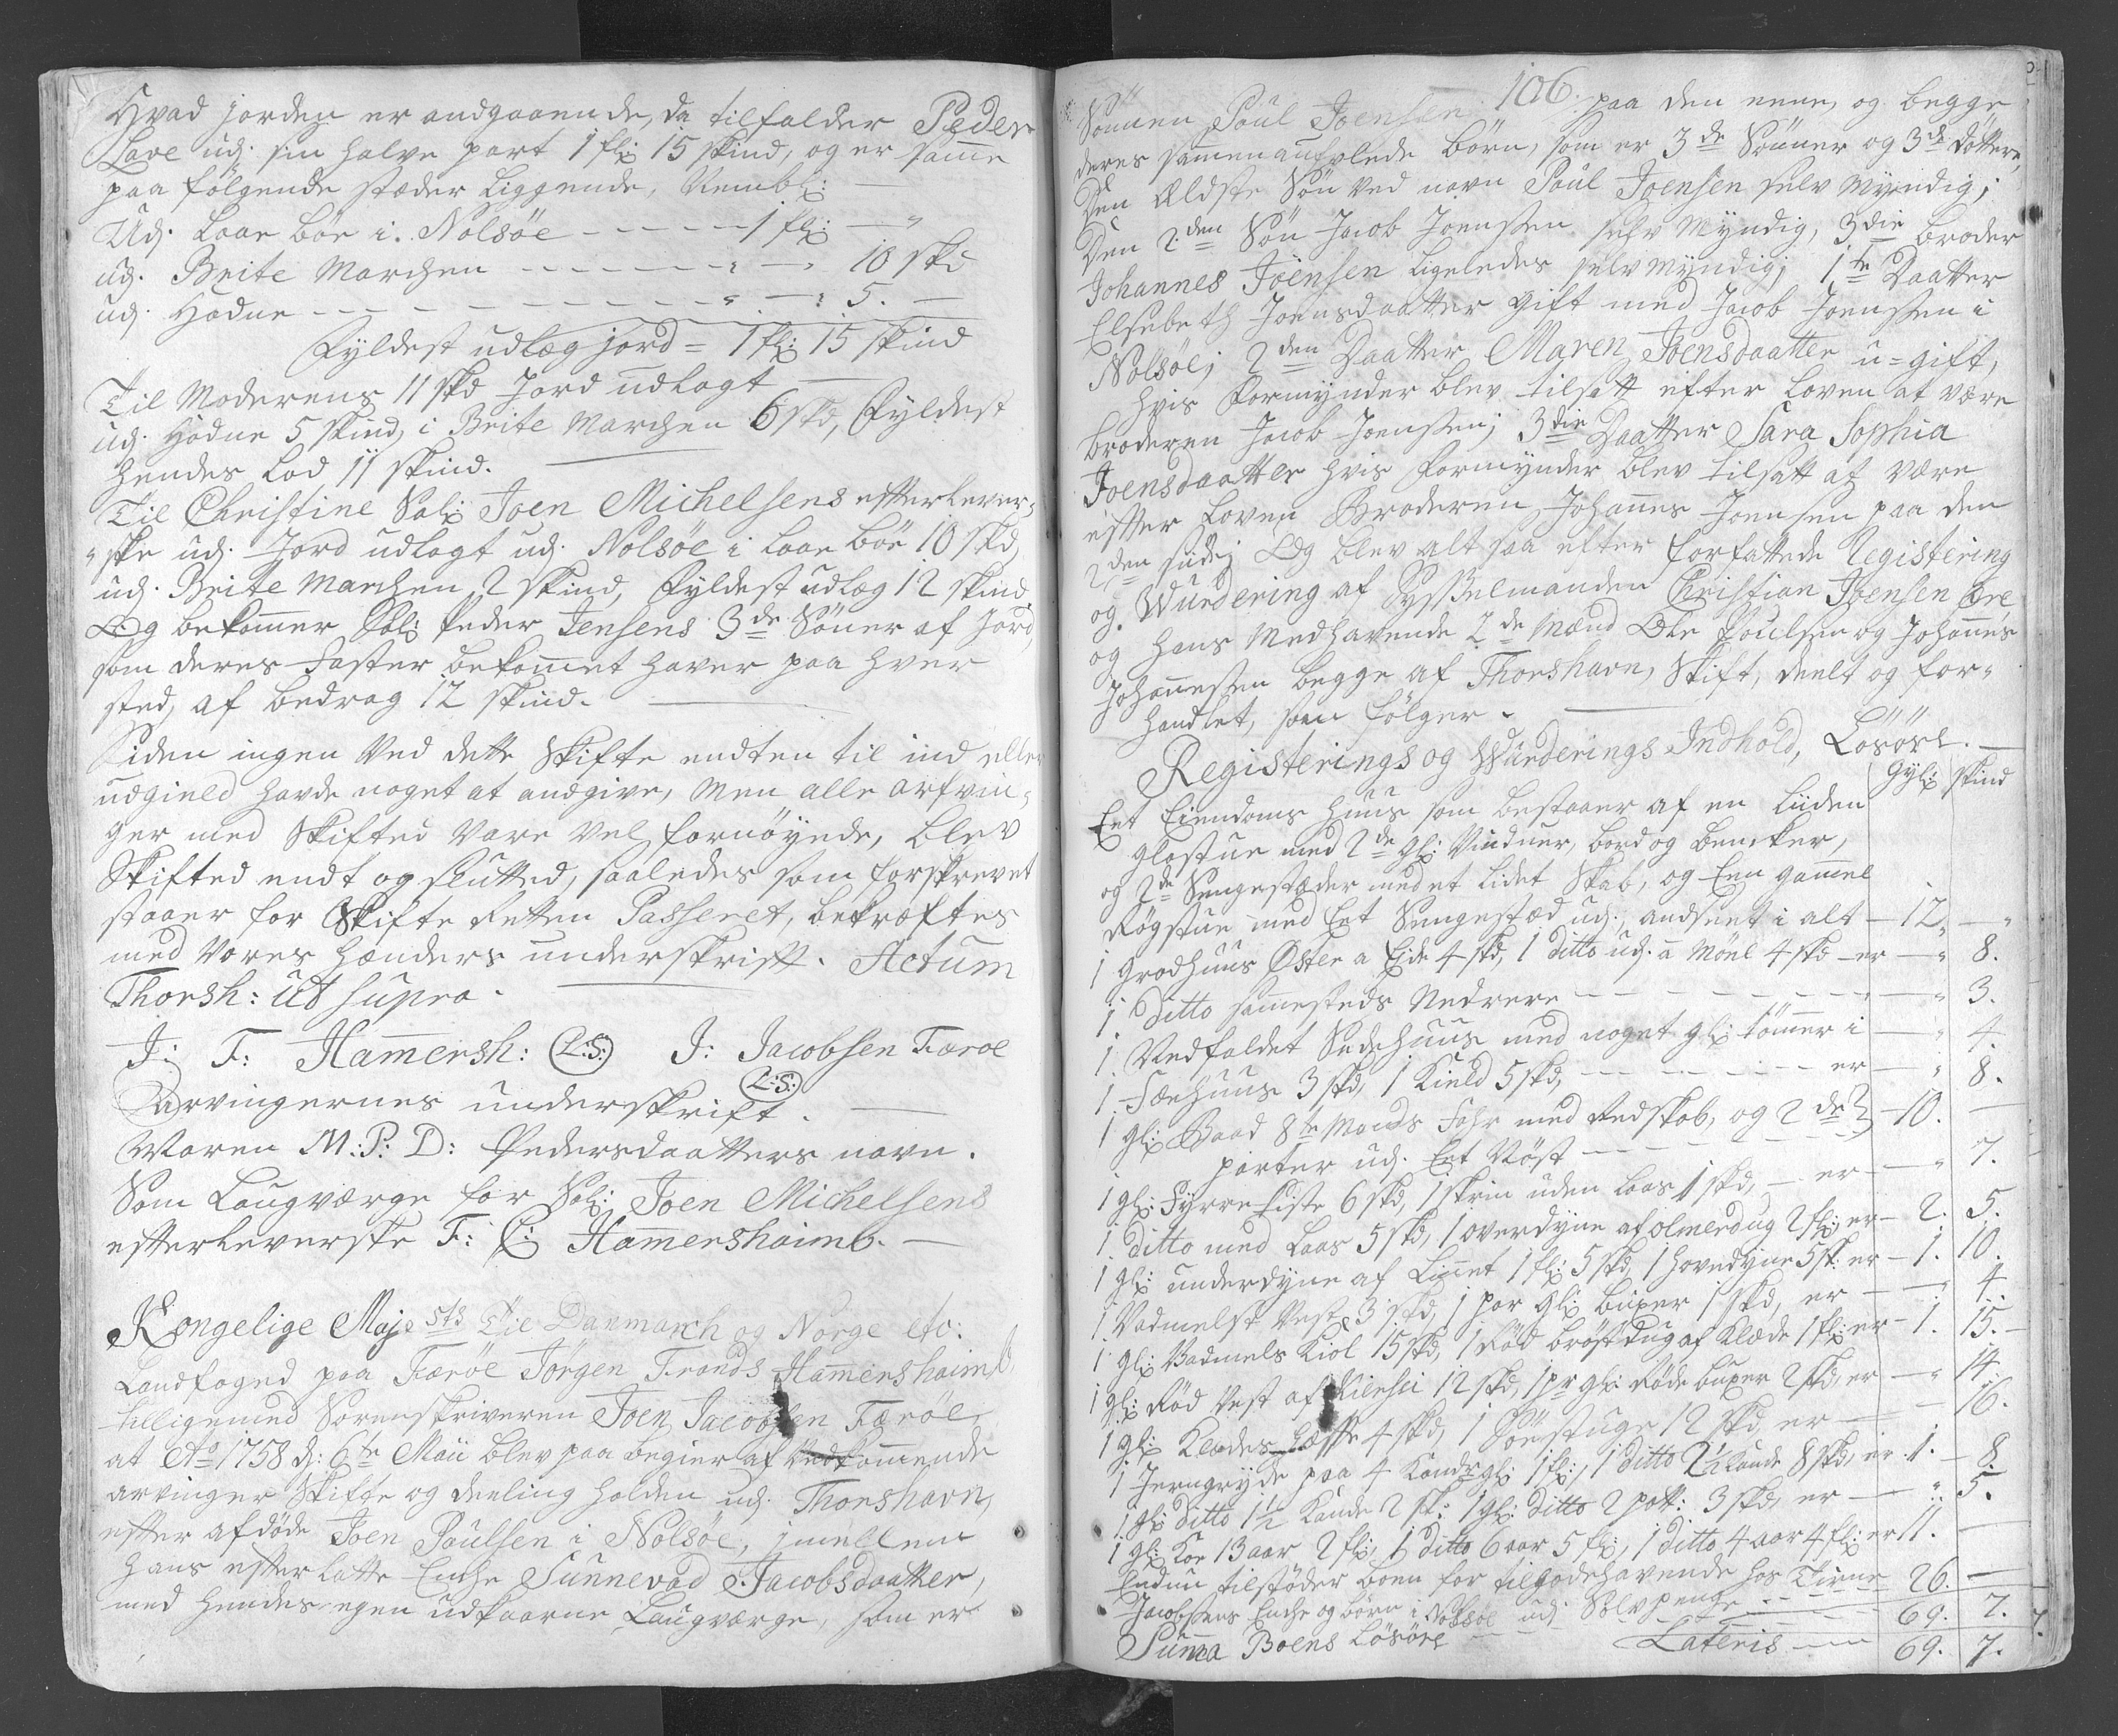 Hvad jorden er andgaaende, da tilfalder Peder
Lave udj. sin halve part 1 fl: 15 skind, og er samme
paa følgende stæder liggende, Nembl:
Udj. Laar bøe i. Nolsøe - - - - - 1 fl: — "
udj. Breite Marchen - - - - - - - " — " 10 skd
udj. Hødne - - - - - - - - - " — " 5. —
Fyldest udlæg jord = 1 fl: 15 skind
Til Moderens 11 skd Jord udlagt
udj. Hødne 5 skind, i Breite Marchen 6 skd, Fyldest
hendes Lod 11 skind.
Til Christine Sal: Joen Michelsens efterlever-
"ske udj. Jord udlagt udj. Nolsøe i Laar bøe 10 skd,
udj. Breite Marchen 2 skind, Fyldest udlæg 12 skind
Og bekommer Sal: Peder Jensens 3de Sønner af Jord,
som deres Faster bekommet haver paa hver
sted, af bedrag 12 skind.
Siden ingen ved dette Skifte endten til ind eller
udgield havde noget at andgive, Men alle arfvin-
ger med Skifted vare vel fornøyede, blev
Skifted endt og slutted, saaledes som forskrevet
staaer for Skifte Retten Passeret, bekræftes
med Vores hænders underskrift. Actum
Thorsh: ut supra.
J: F: Hamersh: (L:S:) J: Jacobsen Færoe
(L:S:)
Arvingernes underskrift.
Maren M: P: D: Pedersdaatters navn.
Som Laugværge for Sal: Joen Michelsens
efterleverske F: C: Hamershaimb.
Kongelige Majests Til Danmarch og Norge etc:
Landfoged paa Færöe Jørgen Frands Hamershaimb,
tilligemed Sorenskriveren Joen Jacobsen Færöe,
at Ao 1758 d: 6te Maii blev paa begier af Vedkommende
arvinger Skifte og deeling holden udj. Thorshavn,
efter afdøde Joen Poulsen i Nolsøe, imellem
hans efterlatte Enche Sunnevad Jacobsdaatter,
med hendes egen udkaarne Laugværge, som er
106.
Sønnen Poul Joensen paa den eene, og begge
deres sammenauflede børn, som er 3de Sønner og 3de døttre,
Den Ældste Søn ved navn Poul Joensen selv Myndig;
Den 2den Søn Jacob Joensen selv Myndig, 3die broder
Johannes Joensen ligeledes selv myndig; 1te Daatter
Elsebeth Joensdaatter gift med Jacob Joensen i
Nolsøe; 2den Daatter Maren Joensdaatter u=gift,
hvis Formynder blev tilsatt efter Loven at være
broderen Jacob Joensen; 3die Daatter Sara Sophia
Joensdaatter hvis Formynder blev tilsatt at være
efter Loven Broderen Johannes Joensen paa den
2den side; Og blev alt saa efter forfattede Registering
og Wurdering af Sysselmanden Christian Joensen Øre
og hans Medhavende 2de Mænd Ole Poulsen og Johannes
Johannesen begge af Thorshavn, Skift, deelt og for-
handlet, som følger.
Registerings og Wurderings Indhold, Løsøre.
Gyl: skind
Eet Eiendoms Huus som bestaaer af en liiden
glastue med 2de gl: Vinduer, bord og bencker,
og 2de Sengestæder med et lidet Skab, og Een gammel
Røgstue med Eet Sengestæd udj., andseet i alt — 12. — "
1 Grodhuus Øster a Eide 4 skd, 1 ditto udj. a Møel 4 skd - er — " 8.
1. Ditto sammesteds Nedrere - - - - - - - - " 3.
1. Nedfaldet Sædehuus med noget gl: tømmer i — " 4.
1. Fæehuus 3 skd, 1 Kield 5 skd, - - - - - er — " 8.
1 gl: Baad 8te Mands Fahr med Redskab, og 2de
parter udj. Eet Nøst - - - - - - 10. —
1 gl: Fyrre kiste 6 skd, 1 skrin uden Laas 1 skd, - er — " 7.
1. ditto med Laas 5 skd, 1 overdyne af olmerdug 2 fl: er — 2. 5.
1 gl: underdyne af Linnet 1 fl: 5 skd, 1 hovedyne 5 sk: er — 1. 10.
1. Vadmelst Vest 3 skd, 1 par gl: buxer 1 skd, er — " 4.
1 gl: Vadmels Kiol 15 skd, 1 Rød brøstdug af Klæde 1 fl: er — 1. 15.
1 gl: Rød Vest af Kiersei 12 skd, 1 pr gl: Røde buxer 2 skd, er — " 14.
1 gl: Klædes Hætte 4 skd, 1 Søestuge 12 skd er — — 16.
1 Jerngryde paa 4 Kandr gl: 1 fl:, 1 ditto 2½ Kande 8 skd, er 1. 8.
1 gl: ditto 1½ Kande 2 sk: 1 gl: ditto 2 pott: 3 skd, er — " 5.
1 gl: Koe 13 aar 2 fl:, 1 ditto 6 aar 5 fl:, 1 ditto 4 aar 4 fl: er 11. —
Endnu tilstøder boen for tilgodehavende hos
Jacobsens Enche og børn i Nolsøe udj. Sølvpenge - - 26. —
Summa Boens Løsøre - - - - 69. 7.
Lateris — 69. 7.